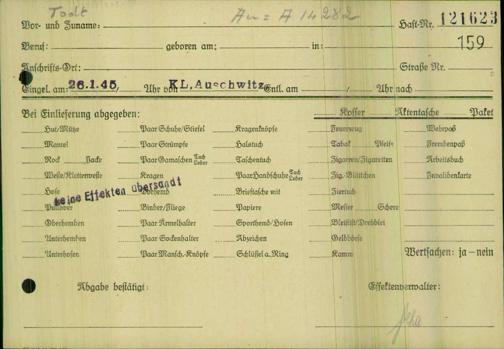 Todt Au = A 14282
Vor- und Zuname: Haft-Nr. 121623
Beruf: geboren am: in: 159
Anschrifts-Ort: Straße Nr.
Eingel. am: 26.1.45 Uhr von KL. Auschwitz Entl. am: Uhr nach
Bei Einlieferung abgegeben: Koffer Aktentasche Paket
Hut/Mütze Paar Schuhe/Stiefel Kragenknöpfe Feuerzeug Wehrpaß
Mantel Paar Strümpfe Halstuch Tabak Pfeife Fremdenpaß
Rock Jacke Paar Gamaschen Tuch Leder Taschentuch Zigarren/Zigaretten Arbeitsbuch
Weste/Kletterweste Kragen Paar Handschuhe Tuch Leder Zig.-Blättchen Invalidenkarte
Hose Vorhemd Brieftasche mit Ziertuch
keine Effekten übersandt
Pullover Binder/Fliege Papiere Messer Schere
Oberhemden Paar Ärmelhalter Sporthemd/Hosen Bleistift/Drehblei
Unterhemden Paar Sockenhalter Abzeichen Geldbörse
Unterhosen Paar Mansch.-Knöpfe Schlüssel a. Ring Kamm Wertsachen: ja – nein
Abgabe bestätigt: Effektenverwalter: